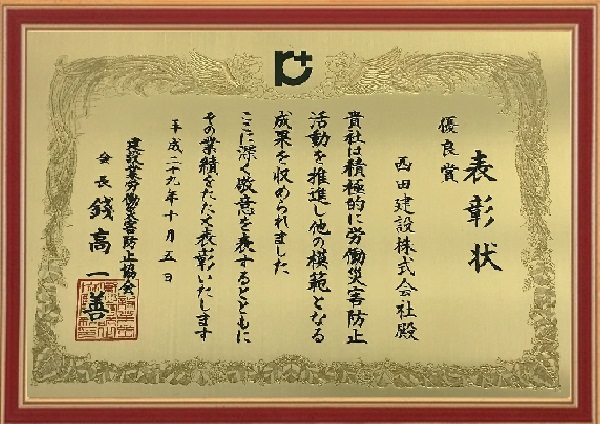 表彰状
優良賞
西田建設株式会社殿
貴社は積極的に労働災害防止
活動を推進し他の模範となる
成果を収められました
ここに深く敬意を表するとともに
その業績をたたえ表彰いたします
平成二十九年十月五日
建設業労働災害防止協会
会長 錢高一善